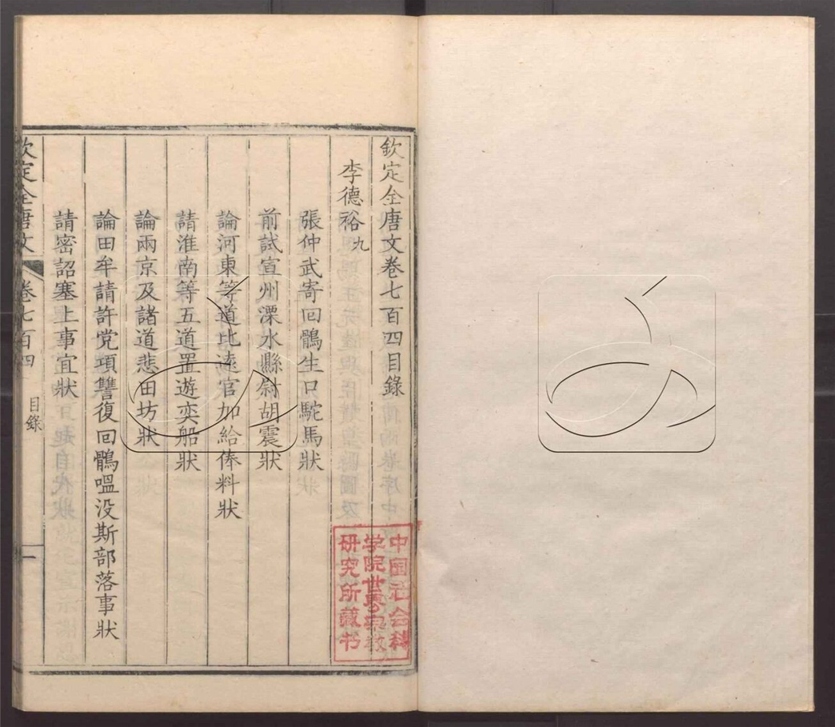 欽定全唐文卷七百四目錄
李德裕九
張仲武寄回鶻生口駝馬狀
前試宣州溧水縣尉胡震狀
論河東等道比遠官加給俸料狀
請淮南等五道置遊奕船狀
論兩京及諸道悲田坊狀
論田牟請許党項讐復回鶻嗢没斯部落事狀
請密詔塞上事宜狀
欽定全唐文
卷七百四
目錄
一
中国社会科
学院世界宗教
研究所藏书